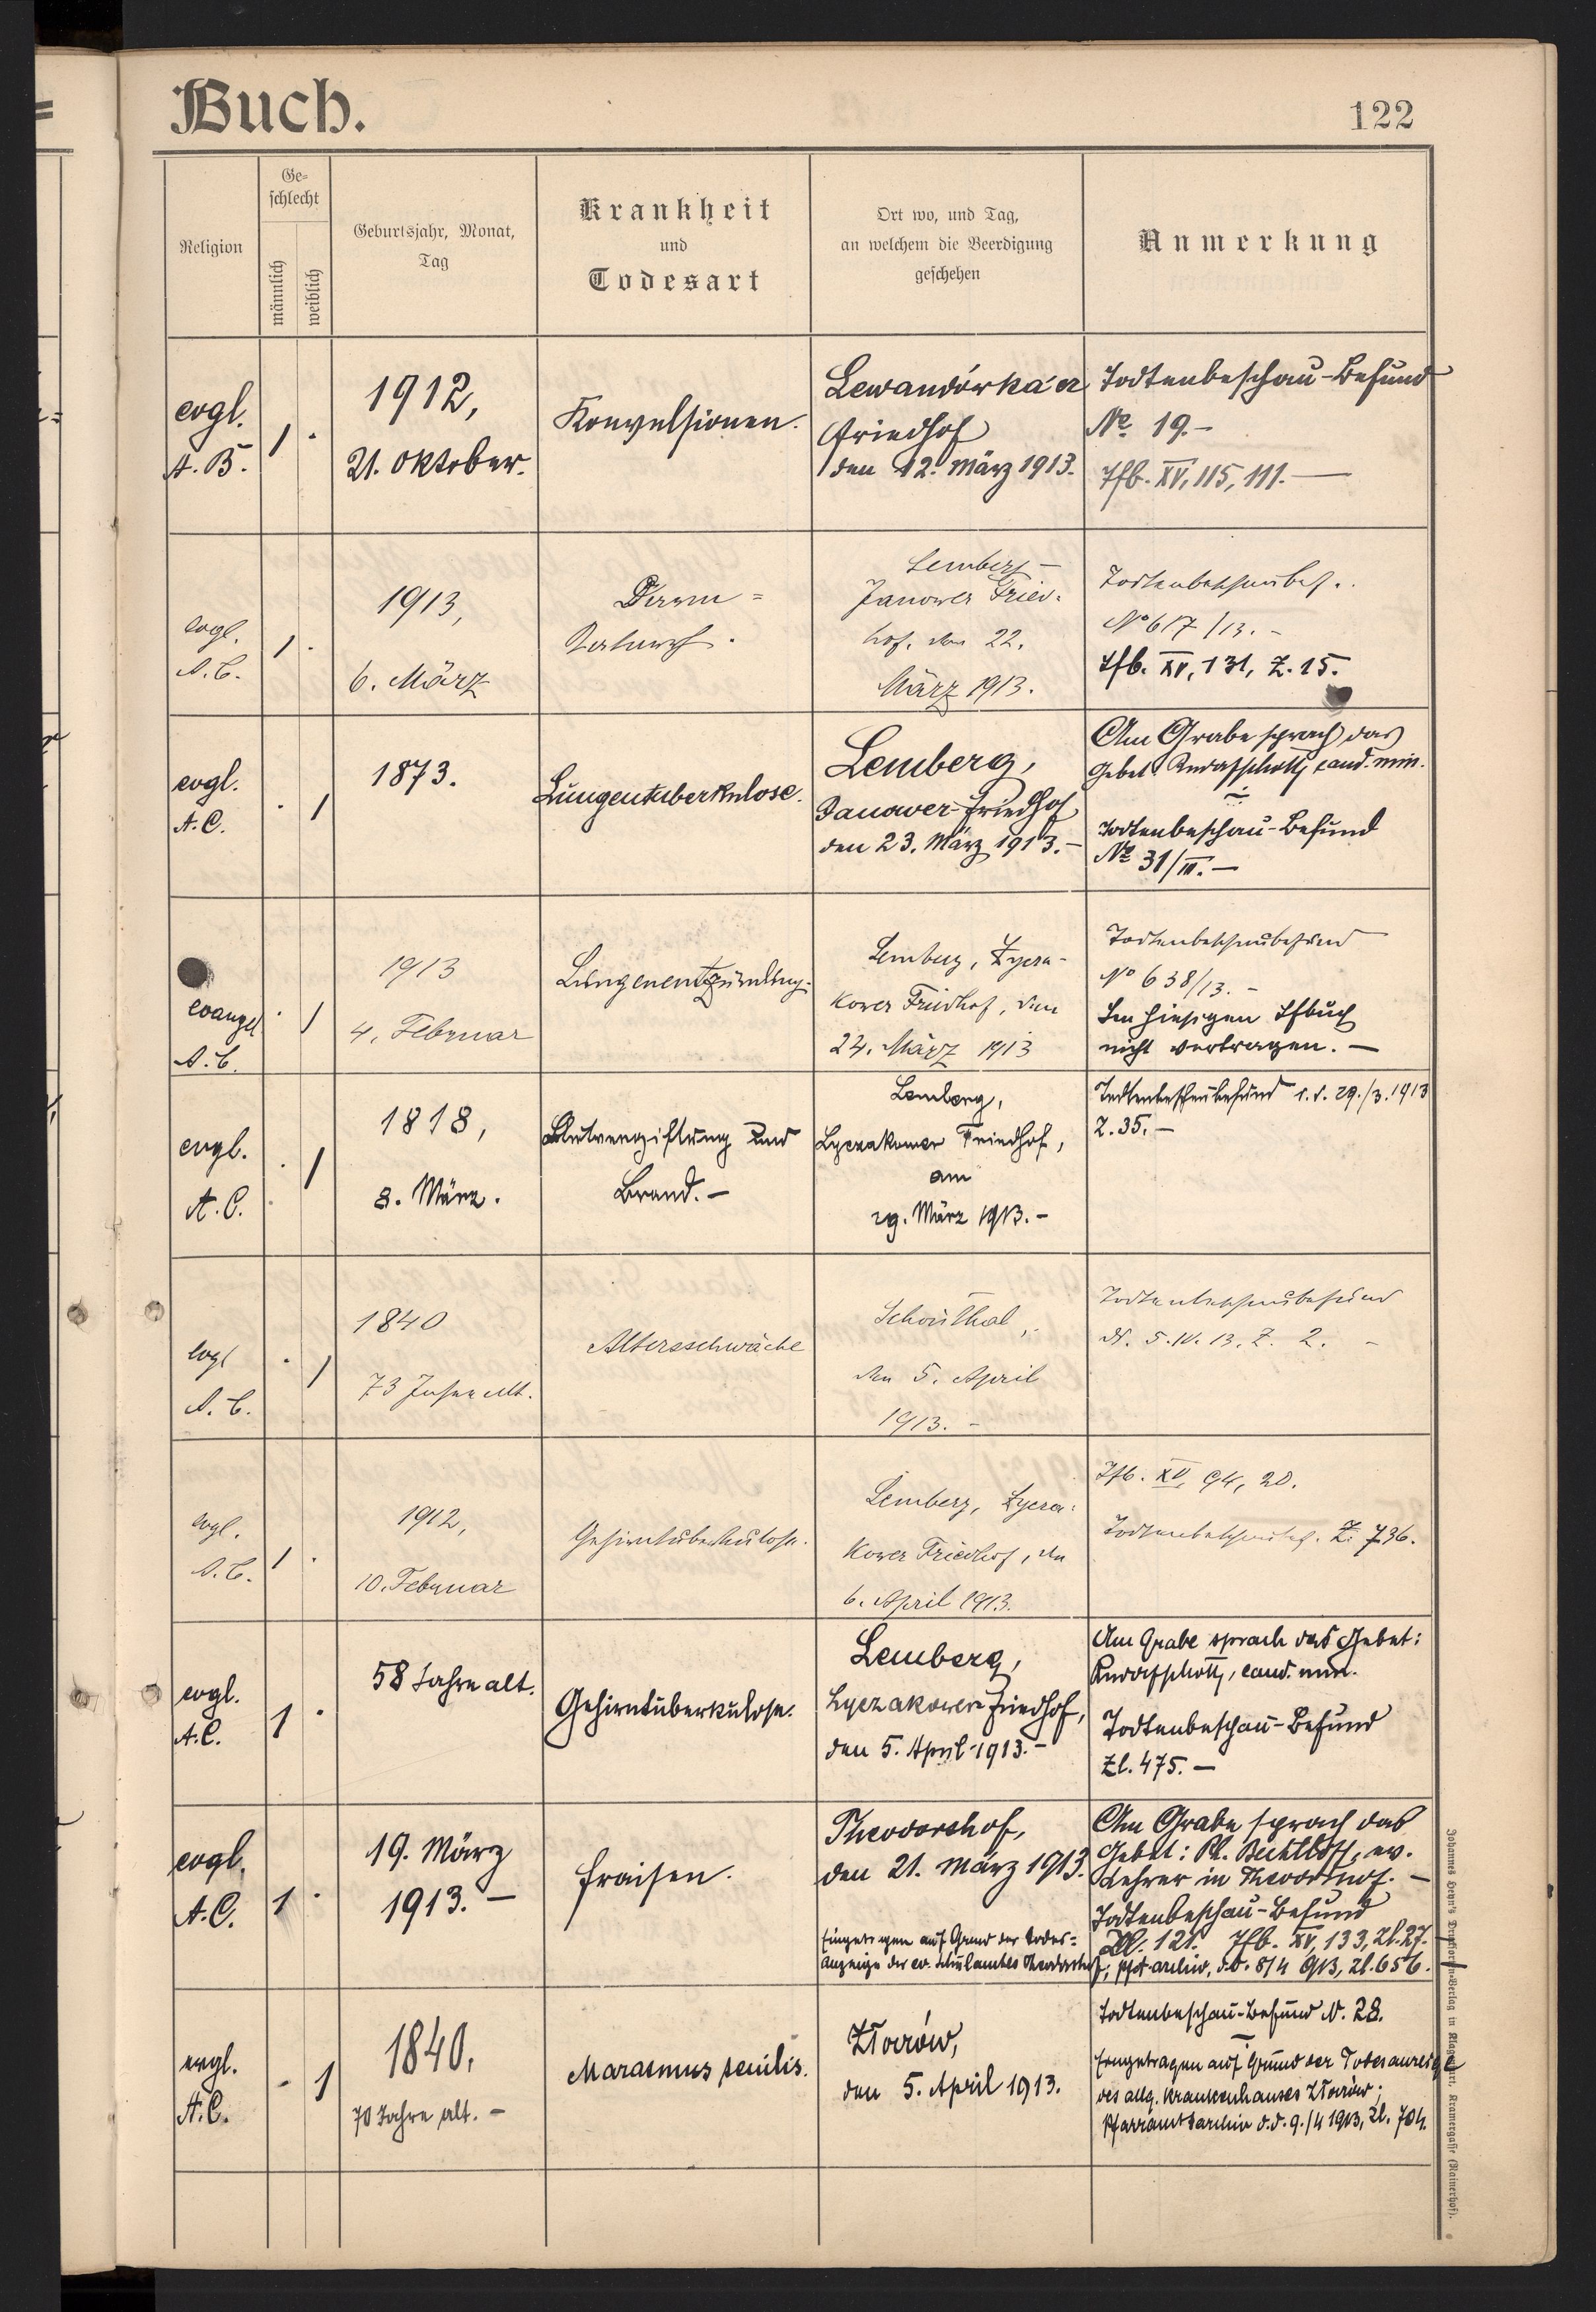 Buch.
122
Religion
Ge-
schlecht
männlich
weiblich
Geburtsjahr, Monat,
Tag
Krankheit
und
Todesart
Ort wo, und Tag,
an welchem die Beerdigung
geschehen
Anmerkung
evgl.
A. B.
1
1912,
21. Oktober.
Konvulsionen.
Lewandówka'er
Friedhof
den 12. März 1913.
Todtenbeschau-Befund
No. 19.-
Tfb. XV, 115, 111.-
evgl.
A. C.
1
1913,
6. März
Darm=
Lemberg -
Janower Fried-
hof, den 22.
März 1913.
Todtenbeschaubef.
No 617/13. -
Tfb. XV, 131, Z. 15.
evgl.
A. C.
1
1873.
Lungentuberkulose.
Lemberg,
Janower-Friedhof
den 23. März 1913.-
Am Grabe sprach das
Gebet: Rudolf Schott, cand. min.
Todtenbeschau-Befund
No 31/III.-
evangel.
A. C.
1
1913
4. Februar
Lungenentzündung.
Lemberg, Lycza-
kower Friedhof, den
24. März 1913
Todtenbeschaubefund
No 638/13. -
Im hiesigen Tfbuch
nicht vertragen. -
evgl.
A. C.
1
1818,
8. März.
Blutvergiftung und
Brand.-
Lemberg,
Lyczakower Friedhof,
am
29. März 1913.-
Todtenbeschaubefund d. d. 29./3. 1913
Z. 35.-
evgl
A. C.
1
1840
73 Jahre alt.
Altersschwäche
Schönthal,
den 5. April
1913. -
Todtenbeschaubefund
dd. 5. IV. 13. Z. 2. -
evgl.
A. C.
1
1912,
10. Februar
Gehirntuberkulose.
Lemberg, Lycza-
kower Friedhof, den
6. April 1913.
Tfb. XV, 94, 20.
Todtenbeschaubef. Z. 736.
evgl.
A. C.
1
58 Jahre alt.
Gehirntuberkulose.
Lemberg,
Lyczakower Friedhof,
den 5. April 1913.-
Am Grabe sprach das Gebet:
Rudolf Schott, cand. min.
Todtenbeschau-Befund
Zl. 475.-
evgl.
A. C.
1
19. März
1913.-
Fraisen.
Theodorshof,
den 21. März 1913.
Eingetragen auf Grund der Todes=
Anzeige des ev. Schulamtes Theodorshof,
Am Grabe sprach das
Gebet: Ph. Bechtloff, ev.
Lehrer in Theodorshof. -
Todtenbeschau-Befund
Zl. 121. Tfb. XV, 133, Zl. 27.
archiv, d.d. 8/4 913, Zl. 656.-
evgl.
A. C.
1
1840.
70 Jahre alt. -
Marasmus senilis.
Złoczów,
den 5. April 1913.
Todtenbeschau-Befund N. 28.
Eingetragen auf Grund der Todesanzeige
des allg. Krankenhauses Złoczów;
Pfarramtsarchiv d. d. 9./4 1913, Zl. 704.
Johannes Heyn's Drucksorten-Verlag in Klagenfurt, Kramergasse (Rainerhof).